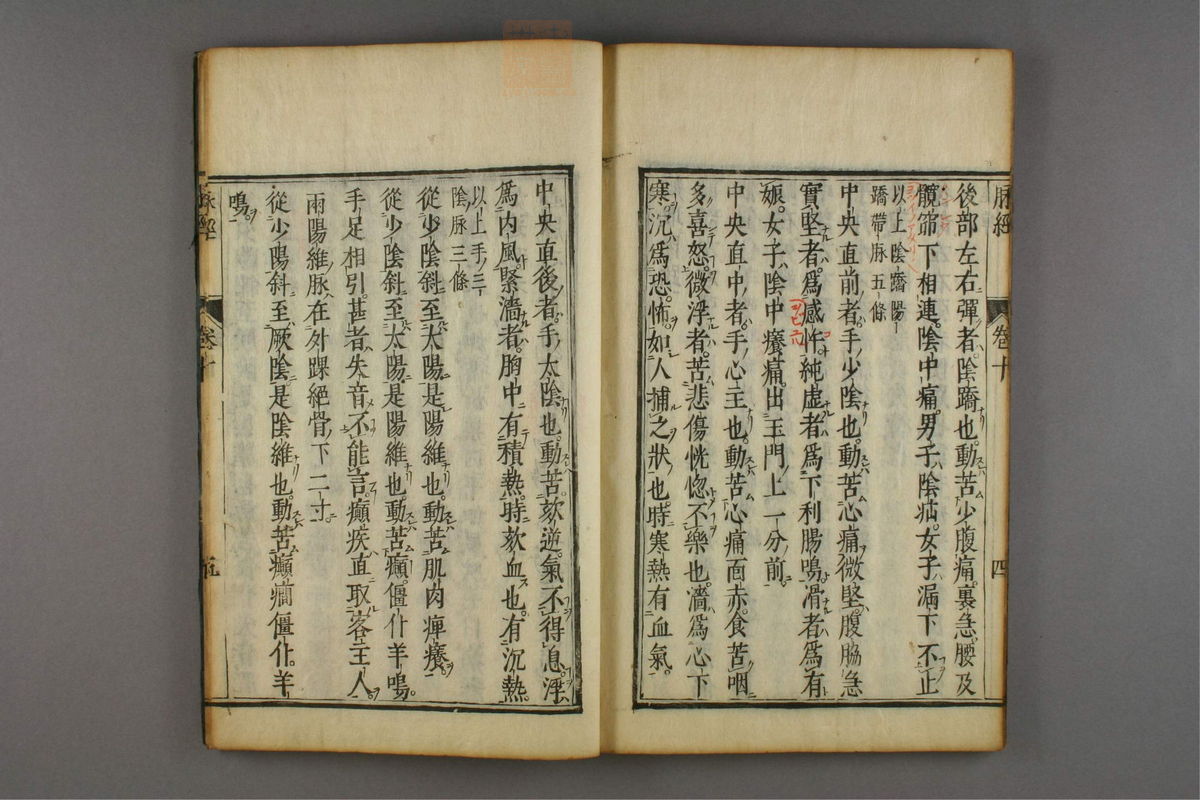 脉經
卷十
四
後部左右彈者陰蹻也動苦少腹痛裏急腰及
髖窌下相連陰中痛男子陰疝女子漏下不止
以上陰蹻陽
蹻帶脉五條
中央直前者手少陰也動苦心痛微堅腹脇急
實堅者爲感忤純虛者爲下利腸鳴滑者爲有
娠女子陰中癢痛出玉門上一分前
中央直中者手心主也動苦心痛面赤食苦咽
多喜怒微浮者苦悲傷恍惚不樂也濇爲心下
寒沉爲恐怖如人捕之狀也時寒熱有血氣
中央直後者手太陰也動苦欬逆氣不得息浮
爲內風緊濇者胸中有積熱時欬血也有沉熱
以上手三
陰脉三條
從少陰斜至太陽是陽維也動苦肌肉痹癢
從少陰斜至太陽是陽維也動苦癲僵仆羊鳴
手足相引甚者失音不能言癲疾直取客主人
兩陽維脉在外踝絕骨下二寸
從少陽斜至厥陰是陰維也動苦癲癎僵仆羊
鳴
脉經
卷十
五